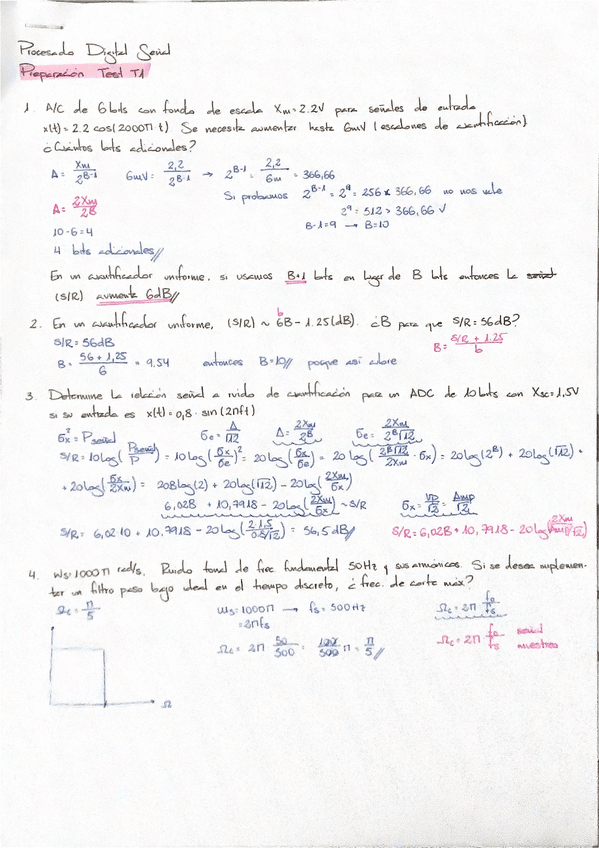 Procesado Digital Señal
Preparación Test T1
1. A/C de 6 bits con fondo de escala Xm=2.2V para señales de entrada
x(t)=2.2 cos(2000π t). Se necesita aumentar hasta 6mV (escalones de cuantificación)
¿Cuántos bits adicionales?
Δ = Xm/2^(B-1)   6mV = 2,2/2^(B-1) → 2^(B-1) = 2,2/6m = 366,66
Si probamos 2^(B-1) = 2^8 = 256 < 366,66 no nos vale
Δ = 2Xm/2^B
2^9 = 512 > 366,66 ✓
10-6=4   B-1=9 → B=10
4 bits adicionales//
En un cuantificador uniforme, si usamos B+1 bits en lugar de B bits entonces la
(S/R) aumenta 6dB//
2. En un cuantificador uniforme, (S/R) ~ 6B - 1.25 (dB). ¿B para que S/R=56dB?
b
S/R = 56dB   B = (S/R + 1.25)/6
B = (56 + 1,25)/6 = 9.54   entonces B=10// porque así cubre
3. Determine la relación señal a ruido de cuantificación para un ADC de 10 bits con Xsc=1,5V
si su entrada es x(t)=0,8 · sin(2πft)
σx² = Pseñal   σe = Δ/√12   Δ = 2Xm/2^B   σe = 2Xm/(2^B√12)
S/R = 10log(Pseñal/P) = 10log(σx/σe)² = 20log(σx/σe) = 20log(2^B√12/2Xm · σx) = 20log(2^B) + 20log(√12) +
+ 20log(σx/2Xm) = 20Blog(2) + 20log(√12) - 20log(2Xm/σx)
6,02B + 10,7918 - 20log(2Xm/σx) ~ S/R   σx = Vp/√2 = Amp/√2
S/R = 6,02·10 + 10,7918 - 20log(2·1,5/0.8/√2) = 56,5dB//   S/R = 6,02B + 10,7918 - 20log(2Xm/Amp/√2)
4. Ws=1000π rad/s. Ruido tonal de frec fundamental 50Hz y sus armónicos. Si se desea implemen-
tar un filtro paso bajo ideal en el tiempo discreto, ¿frec. de corte máx?
Ωc = π/5   ωs = 1000π → fs = 500Hz   Ωc = 2π fo/fs
= 2πfs
Ωc = 2π 50/500 = 100/500 π = π/5//   Ωc = 2π fo/fs señal muestreo
Ω